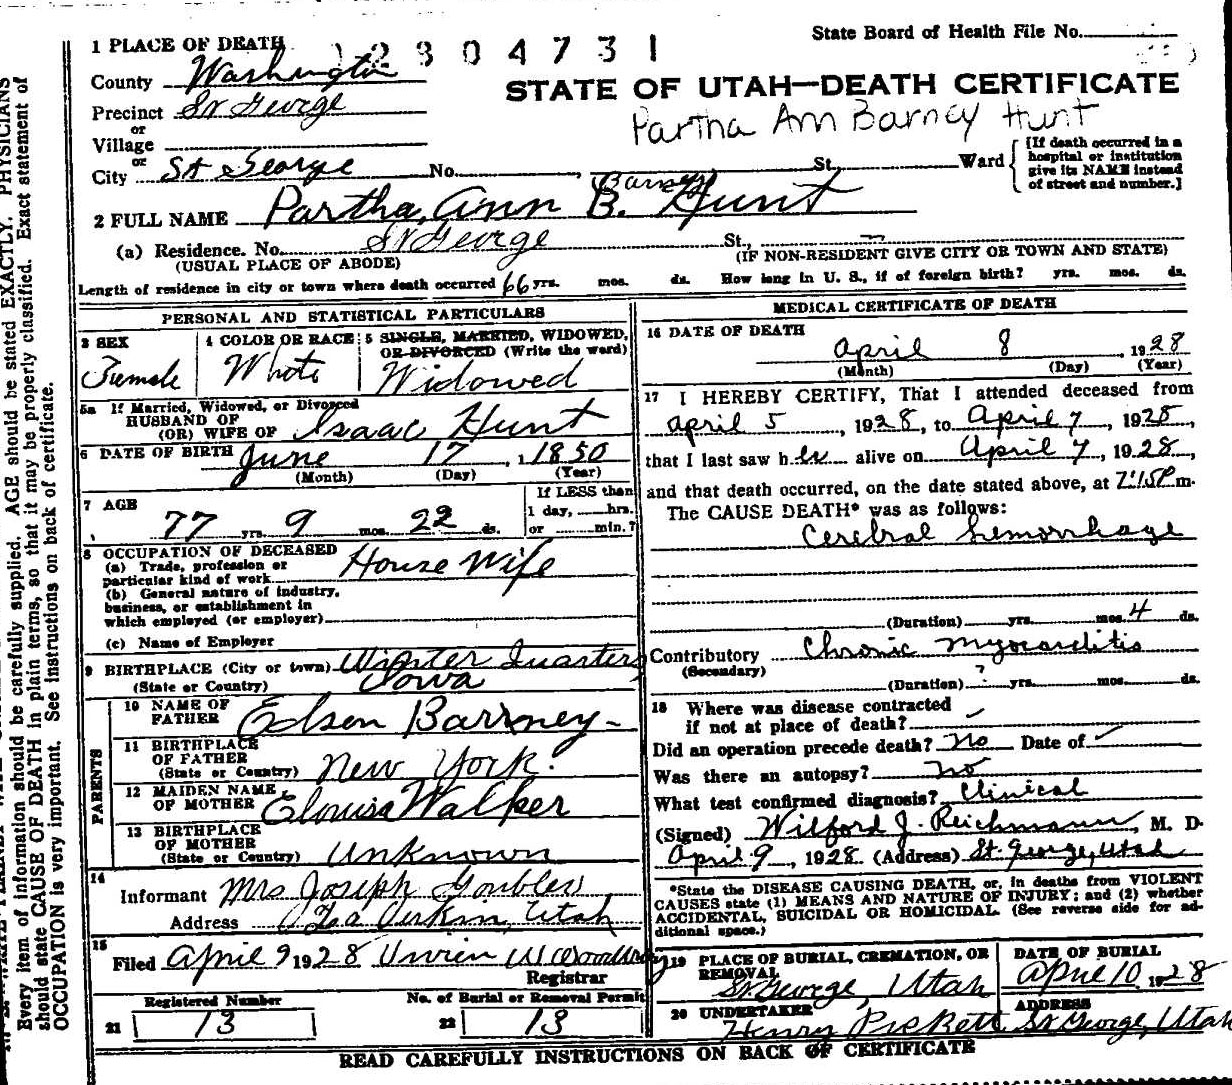 State Board of Health File No.
1 PLACE OF DEATH 2804731
County Washington
STATE OF UTAH—DEATH CERTIFICATE
Precinct St George
Partha Ann Barney Hunt
or
Village
or
City St George No. , St. Ward
[If death occurred in a
hospital or institution
give its NAME instead
of street and number.]
Barney
2 FULL NAME Partha Ann B. Hunt
(a) Residence. No. St George St.,
(USUAL PLACE OF ABODE) (IF NON-RESIDENT GIVE CITY OR TOWN AND STATE)
Length of residence in city or town where death occurred 66 yrs. mos. ds. How long in U. S., if of foreign birth? yrs. mos. ds.
PERSONAL AND STATISTICAL PARTICULARS
3 SEX
Female
4 COLOR OR RACE
White
5 SINGLE, MARRIED, WIDOWED,
OR DIVORCED (Write the word)
Widowed
5a If Married, Widowed, or Divorced
HUSBAND OF
(OR) WIFE OF Isaac Hunt
6 DATE OF BIRTH June 17 , 1 1850
(Month) (Day) (Year)
7 AGE
77 yrs. 9 mos. 22 ds.
If LESS than
1 day, hrs.
or min.?
8 OCCUPATION OF DECEASED
(a) Trade, profession or
particular kind of work House Wife
(b) General nature of industry,
business, or establishment in
which employed (or employer)
(c) Name of Employer
9 BIRTHPLACE (City or town) Winter Quarters
(State or Country) Iowa
PARENTS
10 NAME OF
FATHER Edson Barrney
11 BIRTHPLACE
OF FATHER
(State or Country) New York.
12 MAIDEN NAME
OF MOTHER Elouisa Walker
13 BIRTHPLACE
OF MOTHER
(State or Country) Unknown
14
Informant Mrs Joseph
Address Utah
15
Filed April 9 1928
Registrar
Registered Number
21 13
No. of Burial or Removal Permit
22 13
MEDICAL CERTIFICATE OF DEATH
16 DATE OF DEATH
April 8 , 1928
(Month) (Day) (Year)
17 I HEREBY CERTIFY, That I attended deceased from
April 5 , 1928, to April 7, 1928,
that I last saw her alive on April 7, 1928,
and that death occurred, on the date stated above, at 7:15P m.
The CAUSE DEATH* was as follows:
Cerebral hemorrhage
(Duration) yrs. mos. 4 ds.
Contributory Chronic myocarditis
(Secondary)
(Duration) ? yrs. mos. ds.
18 Where was disease contracted
if not at place of death?
Did an operation precede death? No Date of
Was there an autopsy? No
What test confirmed diagnosis? Clinical
(Signed) Wilford J. Reichmann, M. D.
April 9, 1928 (Address) St. George, Utah
*State the DISEASE CAUSING DEATH, or, in deaths from VIOLENT
CAUSES state (1) MEANS AND NATURE OF INJURY; and (2) whether
ACCIDENTAL, SUICIDAL OR HOMICIDAL. (See reverse side for ad-
ditional space.)
19 PLACE OF BURIAL, CREMATION, OR
REMOVAL
St George, Utah
DATE OF BURIAL
April 10 1928
20 UNDERTAKER
Henry Pickett
ADDRESS
St George, Utah
READ CAREFULLY INSTRUCTIONS ON BACK OF CERTIFICATE
Every item of information should be carefully supplied. AGE should be stated EXACTLY. PHYSICIANS
should state CAUSE OF DEATH in plain terms, so that it may be properly classified. Exact statement of
OCCUPATION is very important. See instructions on back of certificate.